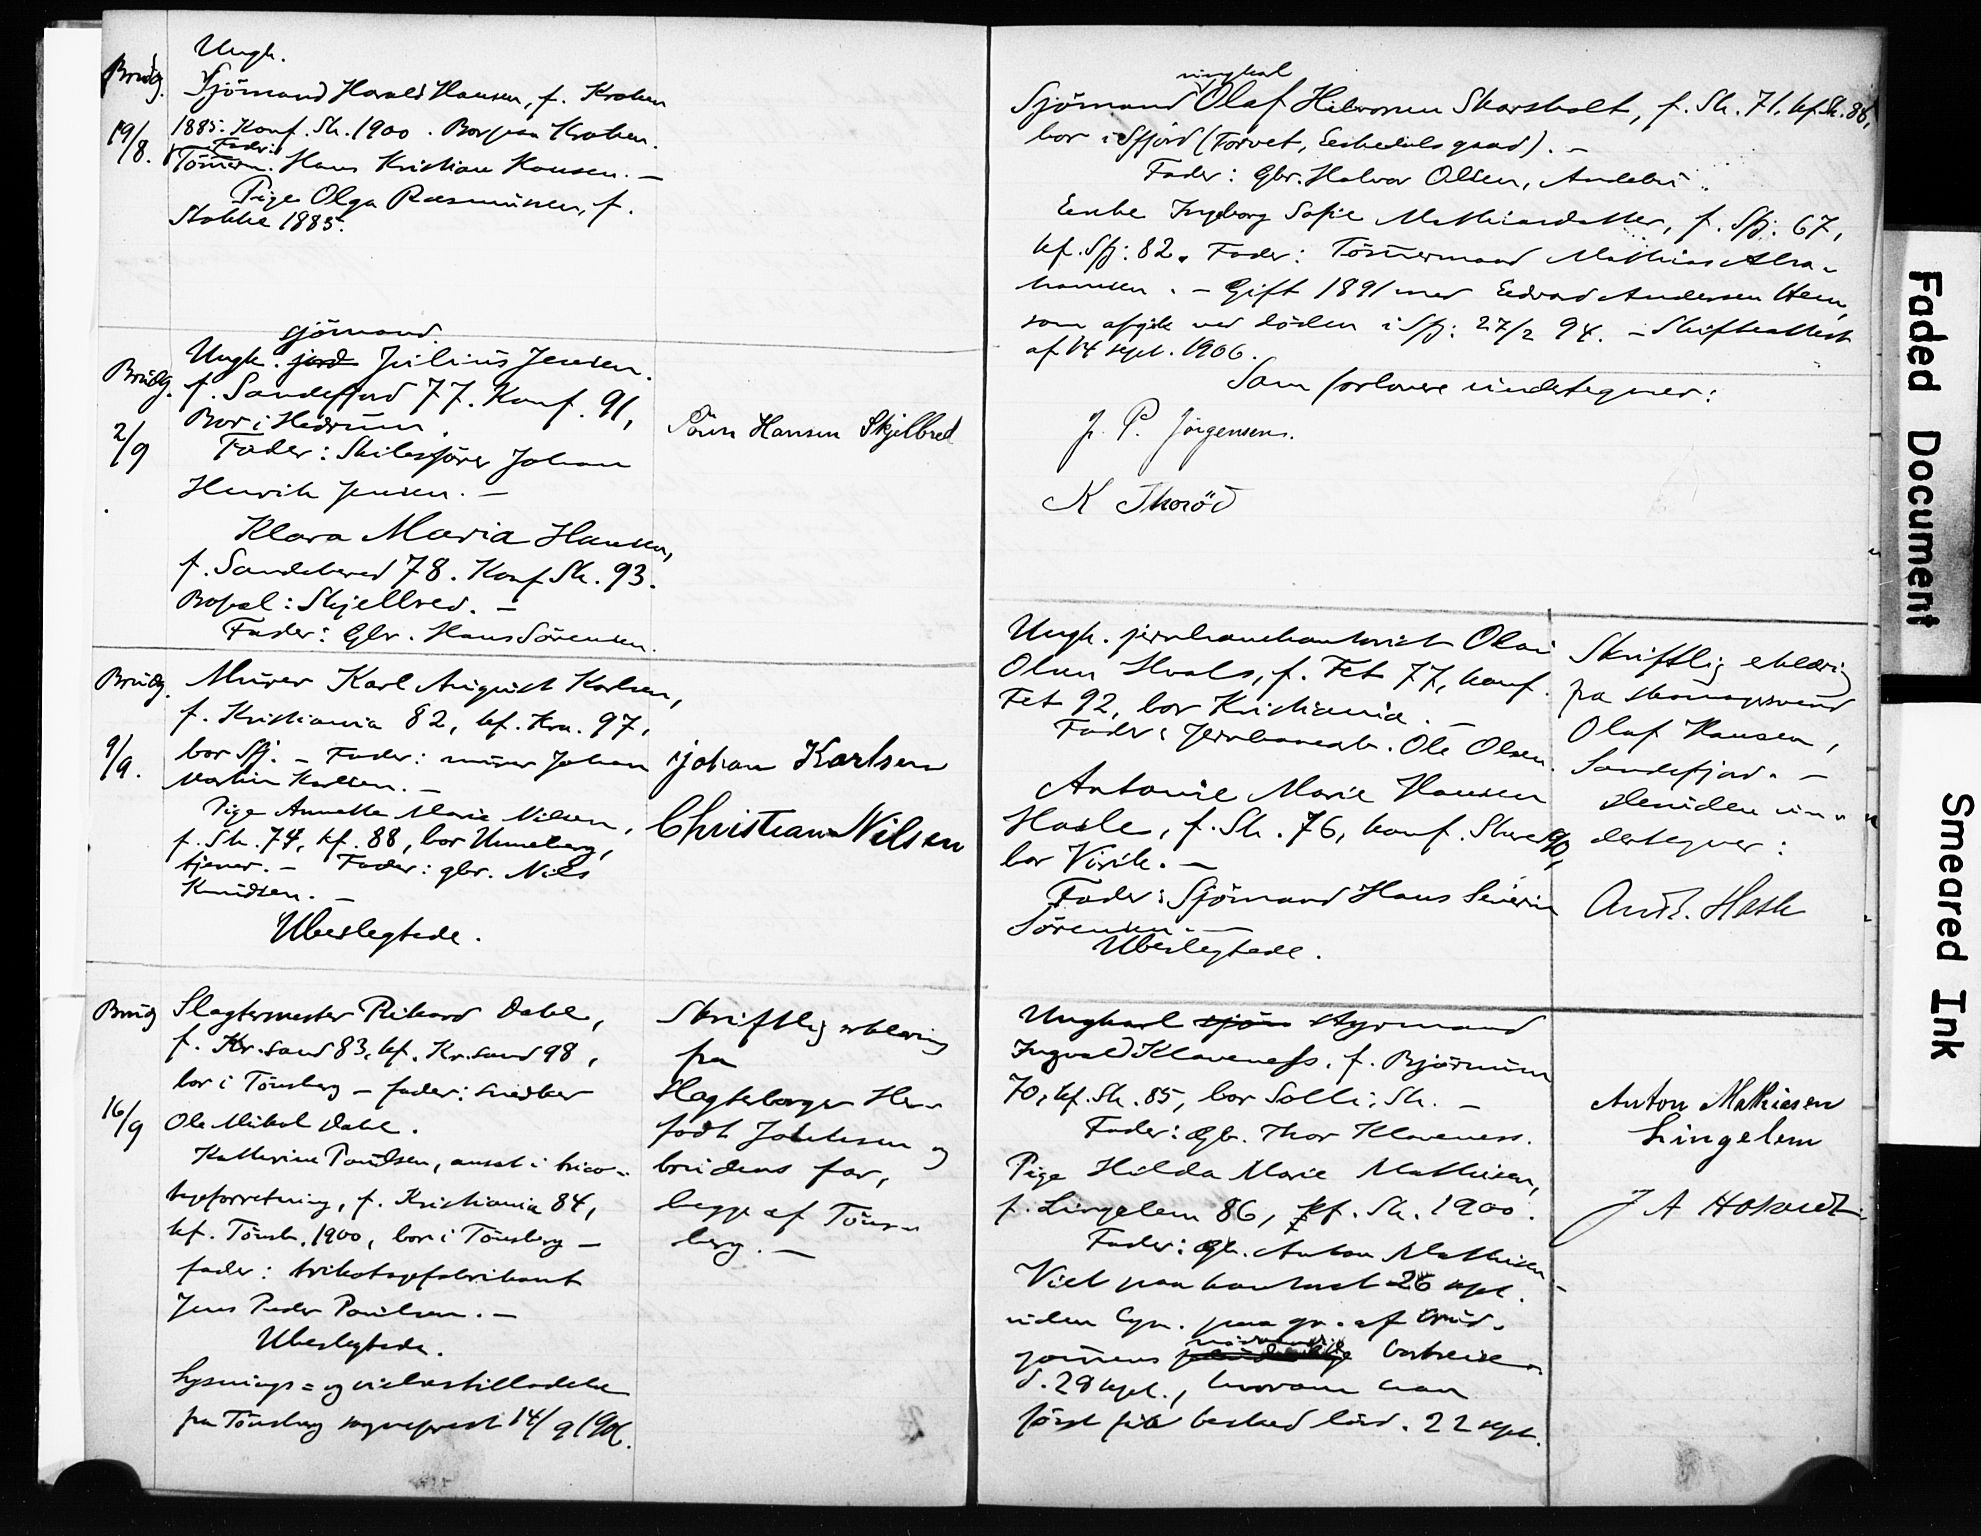 Brudg.
19/8.
Ungk.
Sjömand Harald Hansen, f. Kroken
1885. Konf. Sk. 1900. Bor paa Kroken.
Fader:
Tömrm. Hans Kristian Hansen. —
Pige Olga Rasmussen, f.
Stokke 1885.
Brudg.
2/9
sjömand
Ungk. Julius Jensen.
f. Sandefjord 77. Konf. 91,
Bor i Hedrum.
Fader: Skibsförer Johan
Henrik Jensen. —
Klara Maria Hansen,
f. Sandeherred 78. Konf Sk. 93.
Bopæl: Skjellbred. —
Fader: Gbr. Hans Sörensen.
Sören Hansen Skjelbred
Brudg.
9/9.
Murer Karl August Karlsen,
f. Kristiania 82, kf. Kra. 97,
bor Sfj. — Fader: murer Johan
Martin Karlsen. —
Pige Annette Marie Nilsen,
f. Sk. 74, kf. 88, bor Unneberg,
tjener. — Fader: gbr. Nils
Knudsen. —
Ubeslegtede.
Johan Karlsen
Christian Nilsen
Brudg
16/9
Slagtermester Rikard Dahl,
f. Kr.sand 83, kf. Kr.sand 98,
bor i Tönsberg — fader: snedker
Ole Mikal Dahl.
Katherine Paulsen, ansat i trico-
tageforretning, f. Kristiania 84,
kf. Tönsb. 1900, bor i Tönsberg —
fader: trikotagefabrikant
Jens Peder Paulsen. —
Ubeslegtede.
Lysnings= og vielsestilladelse
fra Tönsberg sogneprest 14/9 1906.
Skriftlig erklæring
fra
Slagteborger
og
brudens far,
begge af Töns-
berg. —
ungkal
Sjömand Olaf Skarsholt, f. Sk. 71. kf. Sk. 86,
bor i Sfjord (Torvet, gaard). —
Fader: Gbr. Halvor Olsen, Andebu.
Enke Ingeborg Sofie Mathiasdatter, f. Sfj. 67,
kf. Sfj: 82. Fader: Tömmermand Mathias Abra-
hamsen. — Gift 1891 med Edvard Andersen Hem,
som afgik ved döden i Sfj: 27/2 94. — Skifteattest
af 14 sept. 1906.
Som forlovere undertegner:
J. P. Jörgensen.
K Thoröd
Ungk. jernbanekontorist Olai
Olsen Hvals, f. Fet 77, konf.
Fet 92, bor Kristiania. —
Fader: Jernbanearb. Ole Olsen.
Antonie Marie Hansen
Hasle, f. Sk. 76, konf. Skee 90,
bor Virik. —
Fader: Sjömand Hans Severin
Sörensen. —
Ubeslegtede.
Skriftlig erklæring
fra
Olaf Hansen,
Sandefjord. —
Desuden un-
dertegner:
Andr. Hasle
Ungkarl sjöm styrmand
Ingvald Klaveness, f. Bjørnum
70, kf. Sk. 85, bor Solli, Sk. —
Fader: Gb. Thor Klaveness.
Pige Hilda Marie Mathisen,
f. Lingelem 86, kf. Sk. 1900.
Fader: Gb. Anton Mathisen —
Viet paa kontoret 26 sept.
uden lysn. paa gr. af brud-
gommens nödvendige bortreise
d. 29 sept., hvorom han
först fik besked lörd. 22 sept.
Anton Mathiesen
Lingelem
J A
Faded Document
Smeared Ink